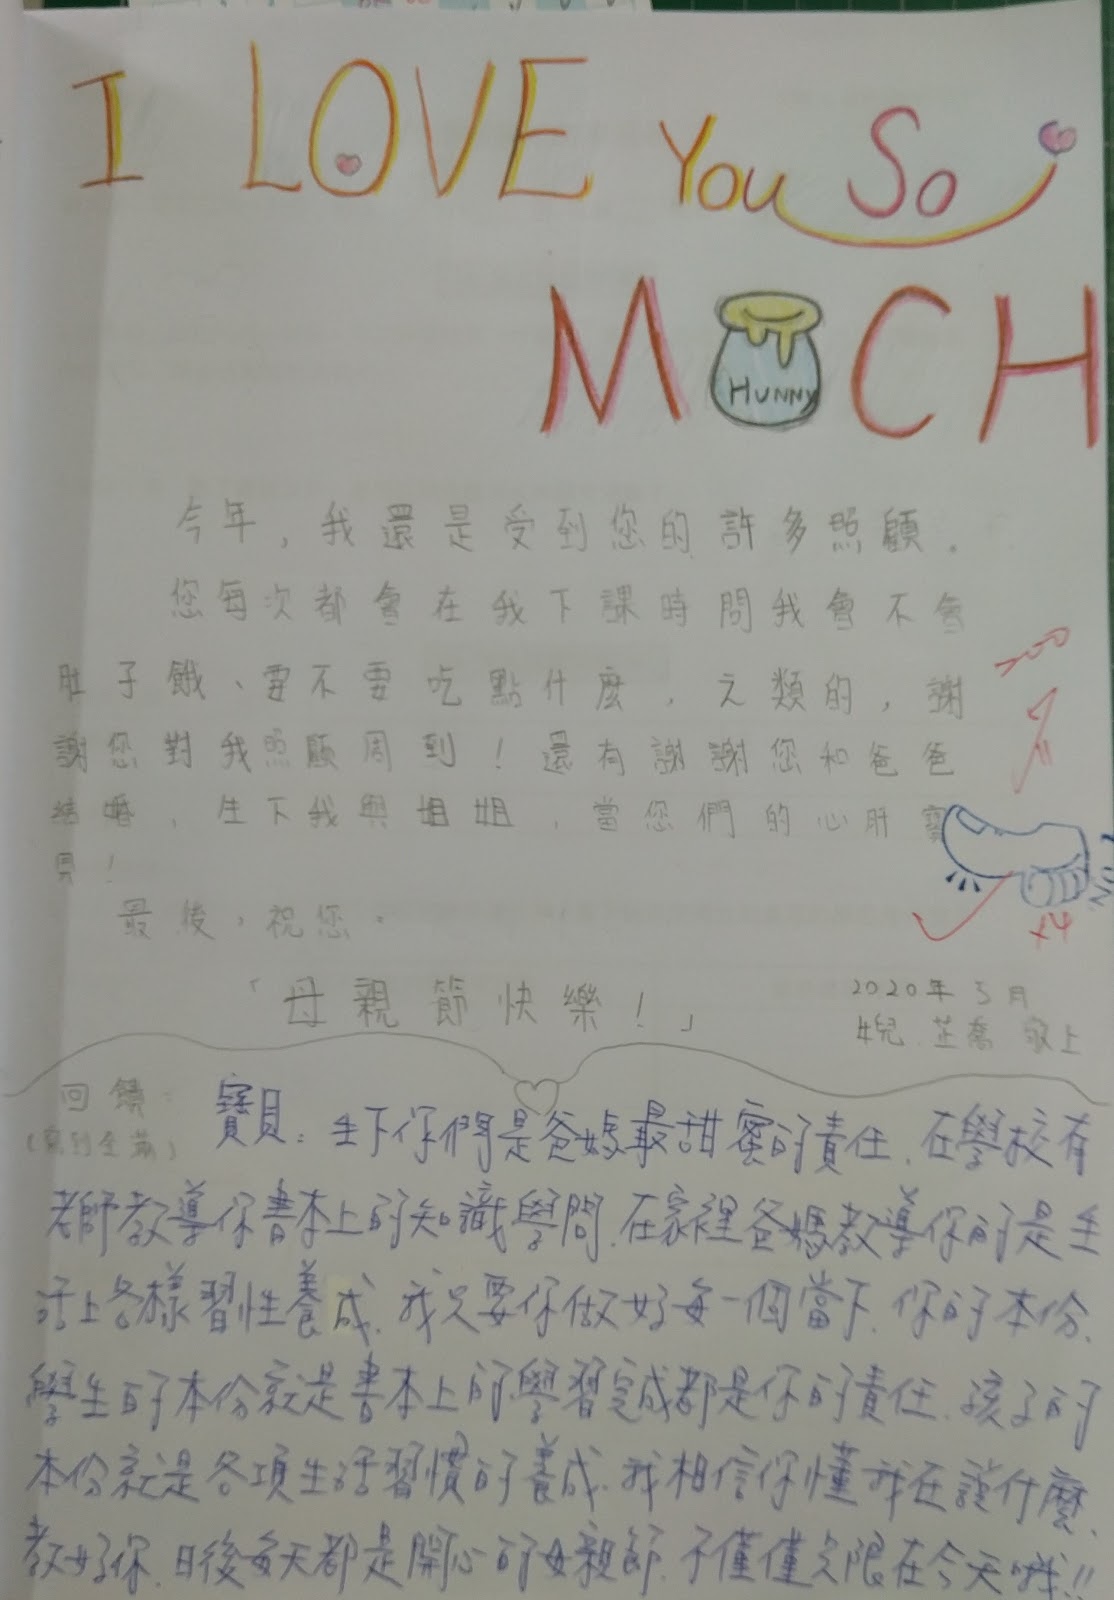 I LOVE You So
M CH
HUNNY
今年，我還是受到您的許多照顧。
您每次都會在我下課時問我會不會
肚子餓、要不要吃點什麼，之類的，謝
謝您對我照顧周到！還有謝謝您和爸爸
結婚，生下我與姐姐，當您們的心肝寶
貝！
最後，祝您。
「母親節快樂！」
2020年5月
芷喬 敬上
+4
回饋：
寶貝：生下你們是爸媽最甜蜜的責任.在學校有
老師教導你書本上的知識學問.在家裡爸媽教導你的是生
活上各樣習性養成.我只要你做好每一個當下.你的本份.
學生的本份就是書本上的學習完成都是你的責任.孩子的
本份就是各項生活習慣的養成.我相信你懂我在說什麼.
教好你.日後每天都是開心的母親節.不僅僅只限在今天哦!!